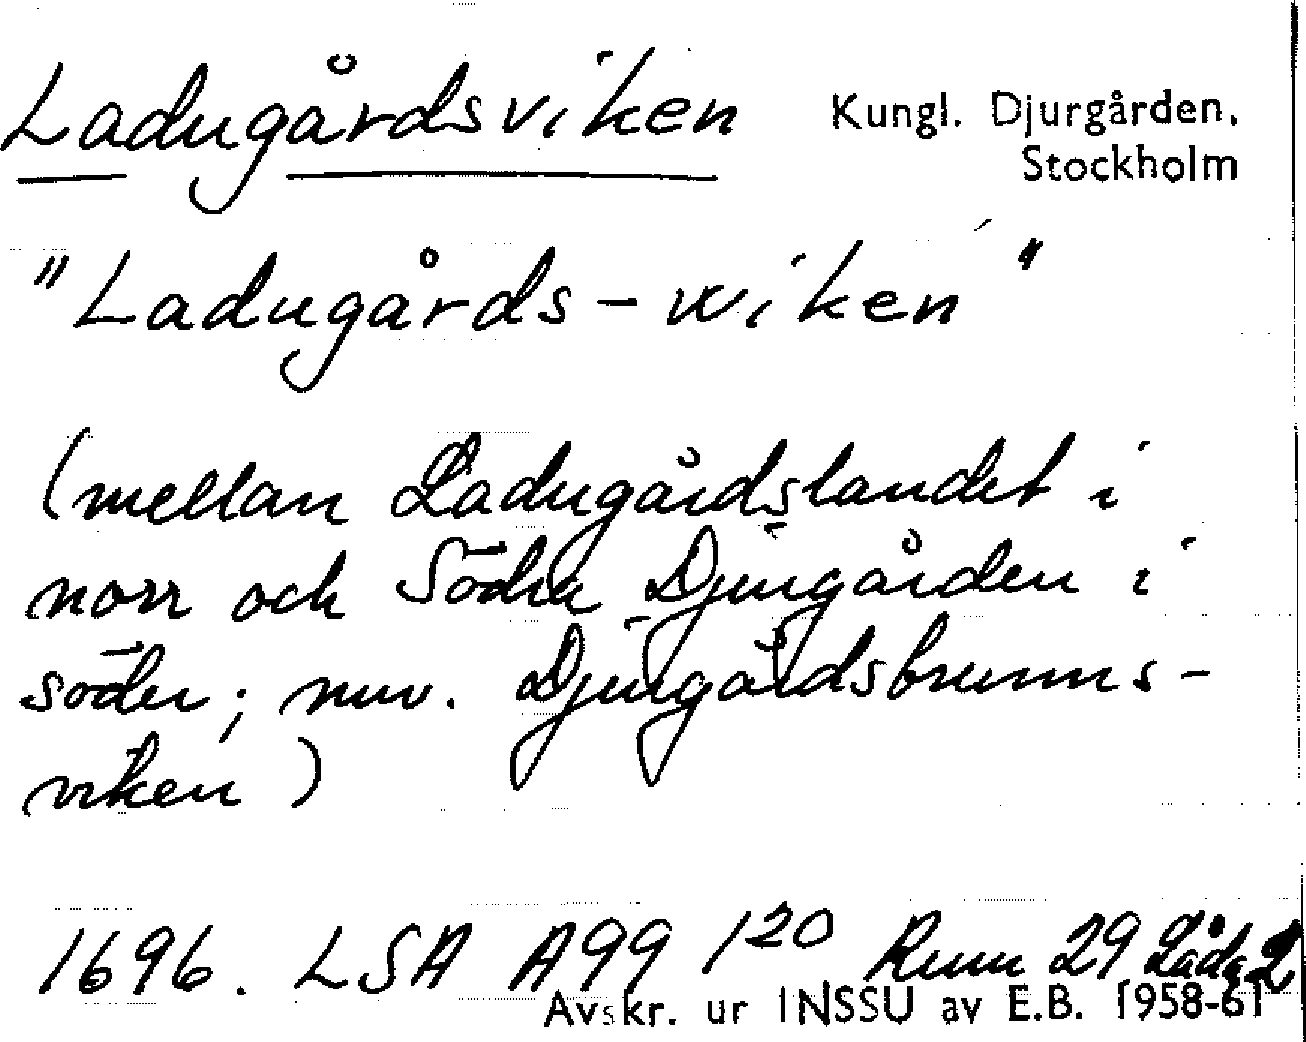 Ladugårdsviken Kungl. Djurgården,
Stockholm
"Ladugårds-wiken"
(mellan Ladugårdslandet i
norr och Södra Djurgården i
söder; nuv. Djurgårdsbrunns-
viken)
1696. LSA A99 1²⁰ Rum 29 Låda 2
Avskr. ur INSSU av E.B. 1958-61